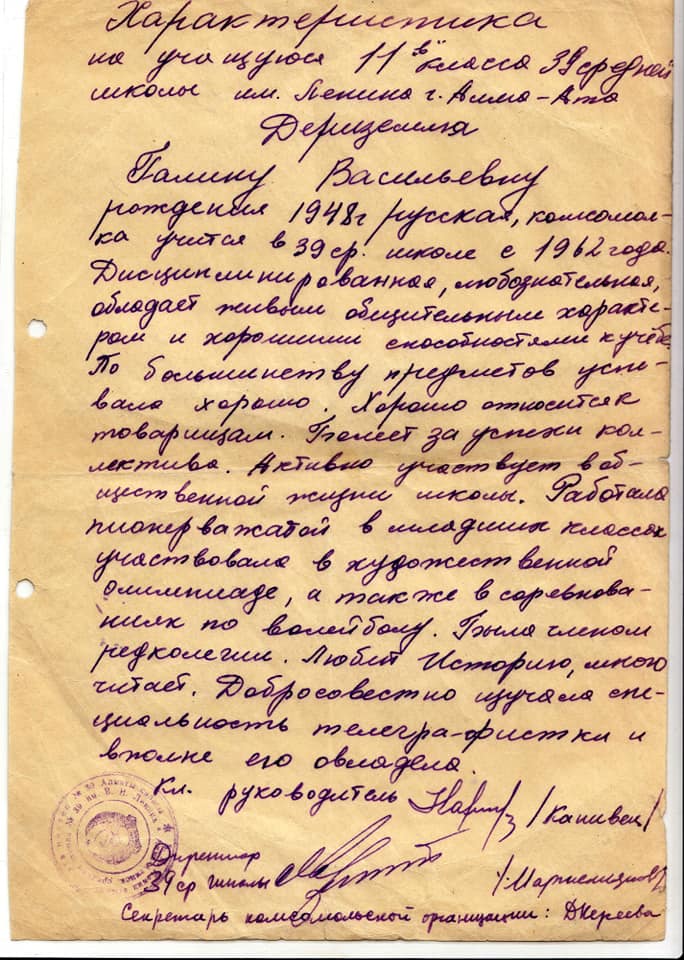 Характеристика
на учащуюся 11 "в" класса 39 средней
школы им. Ленина г. Алма-Ата
Галину Васильевну
рождения 1948г русская, комсомол-
ка учится в 39 ср. школе с 1962 года.
Дисциплинированная, любознательная,
обладает живым общительным характе-
ром и хорошими способностями к учёбе.
По большинству предметов успе-
вала хорошо. Хорошо относится к
товарищам. Болеет за успехи кол-
лектива. Активно участвует в об-
щественной жизни школы. Работала
пионервожатой в младших классах
участвовала в художественной
олимпиаде, а также в соревнова-
ниях по волейболу. Была членом
редколегии. Любит Историю, много
читает. Добросовестно изучала спе-
циальность телеграфистки и
вполне его овладела.
Кл. руководитель /Капивец/
Директор
39 ср школы
Секретарь комсомольской организации: